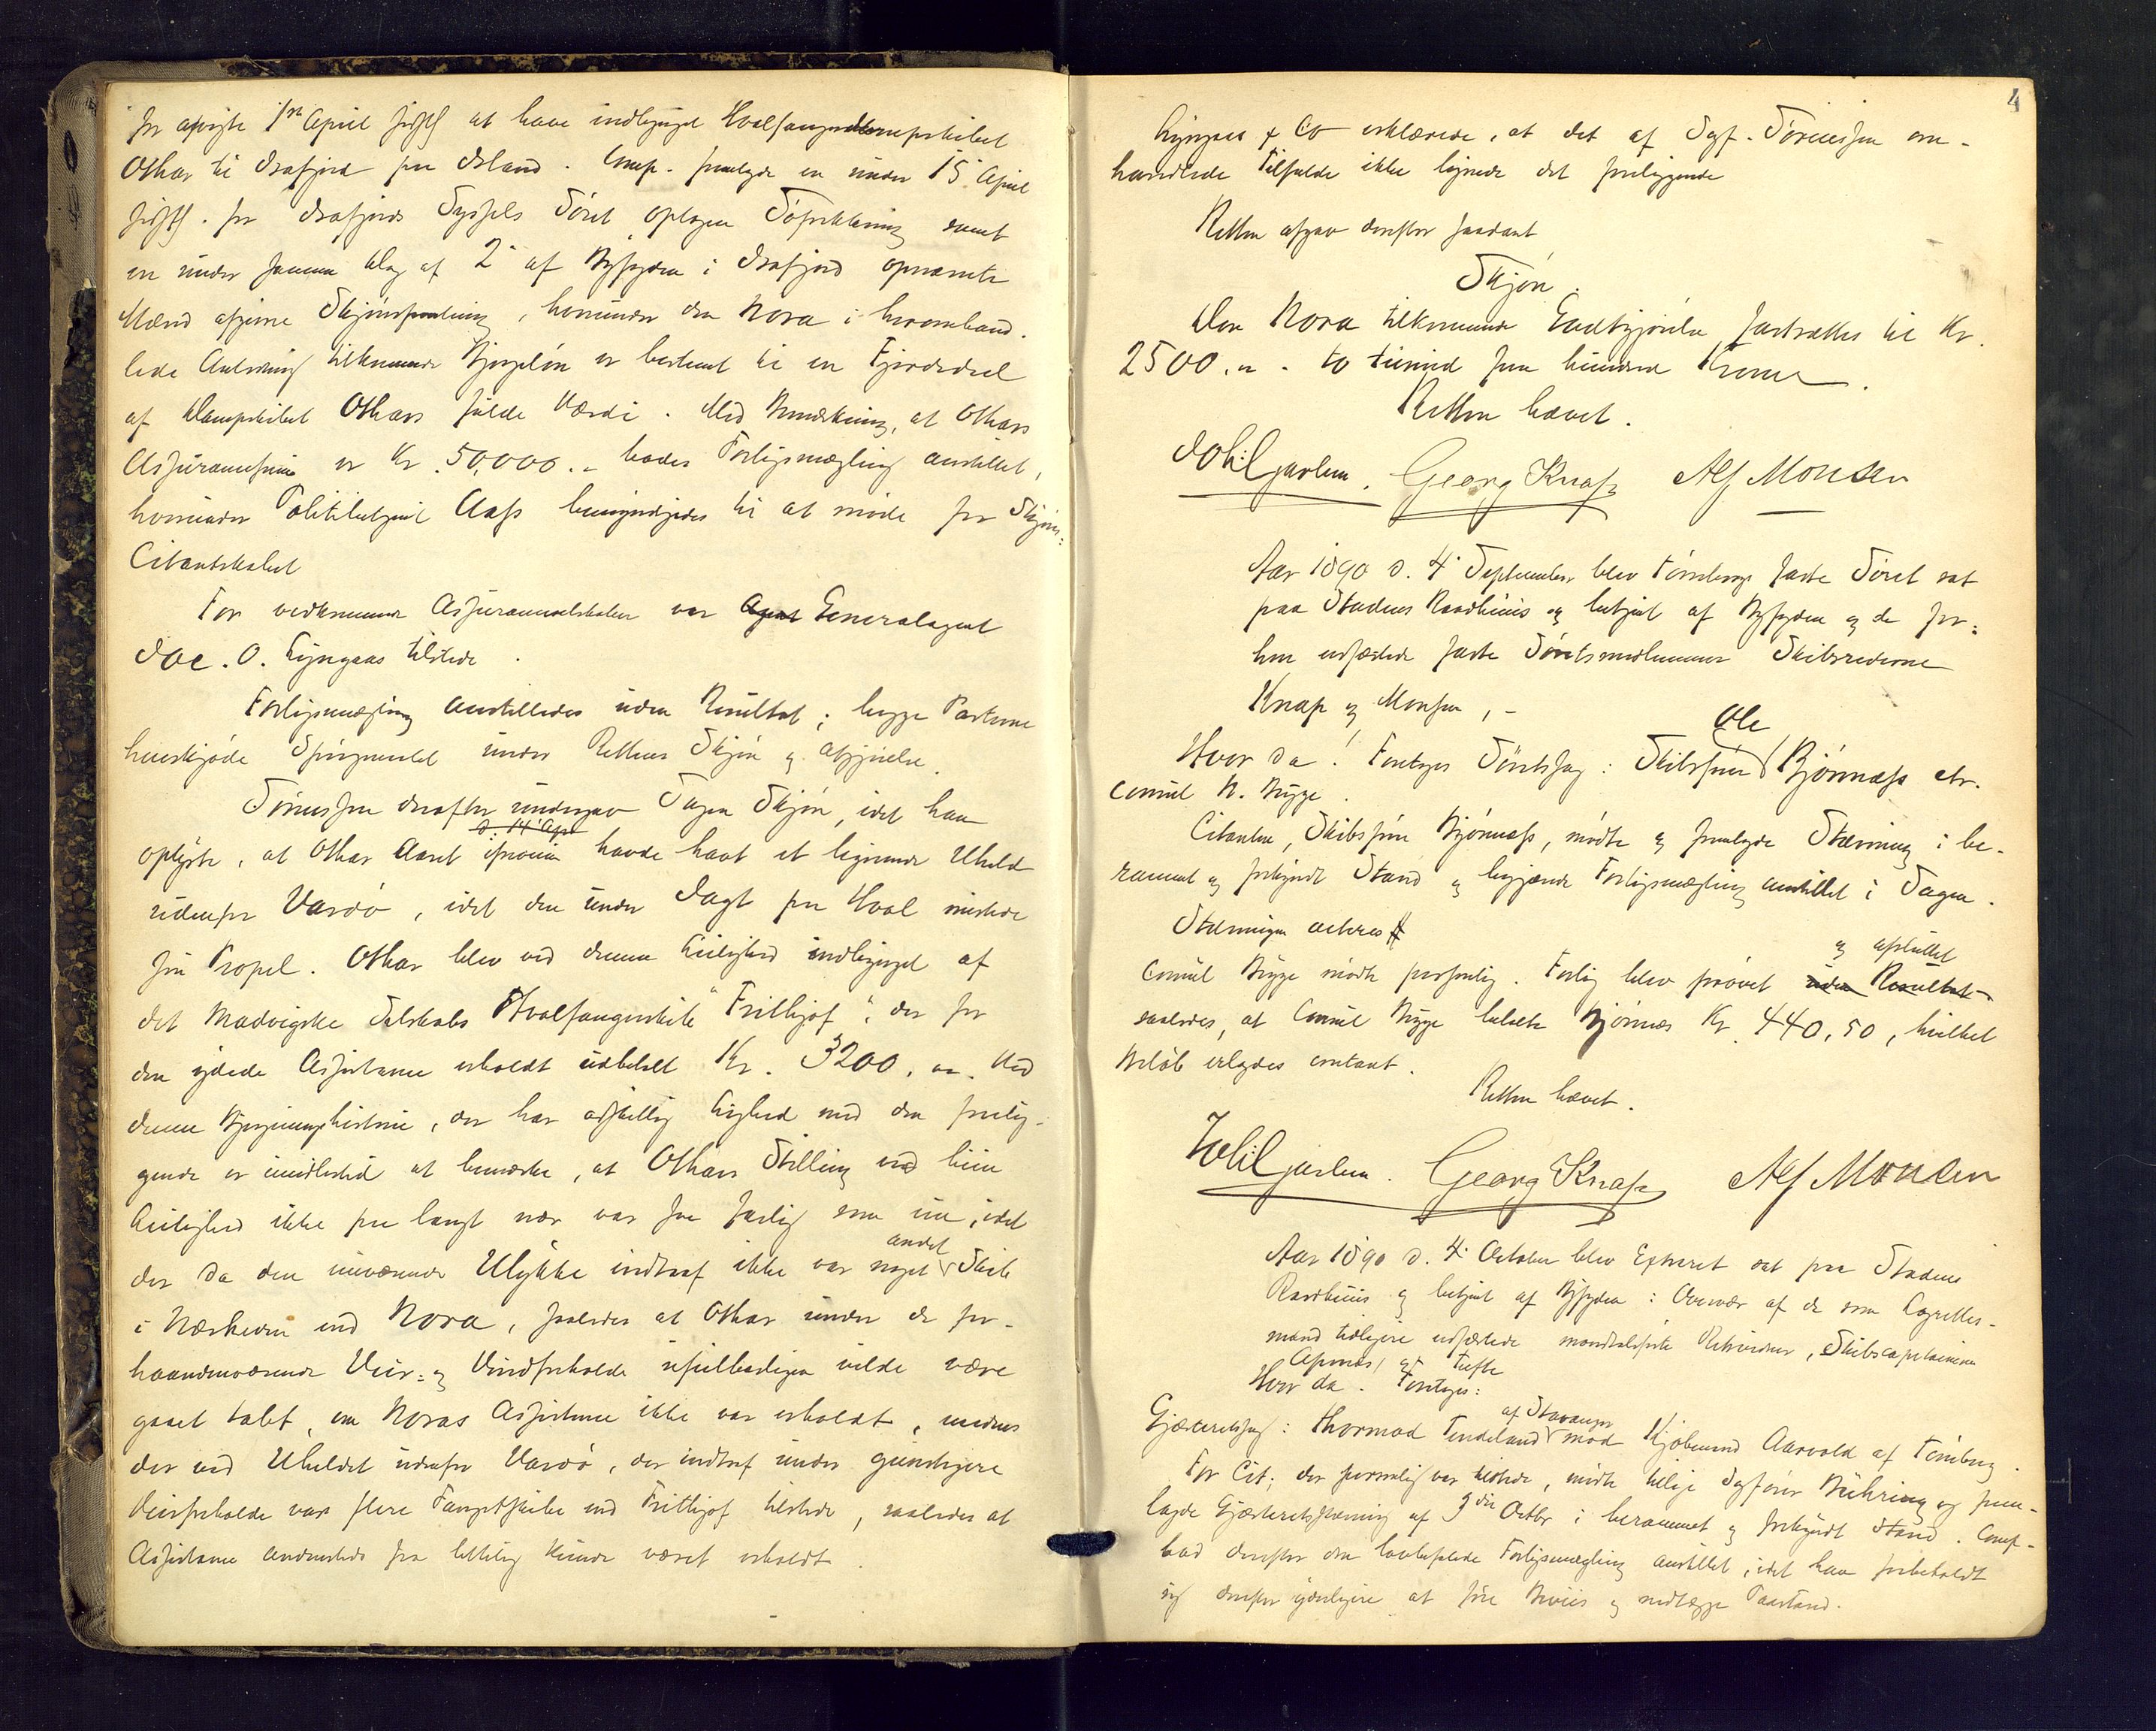 for 1ste April sidstl at have indbugseret Hvalfangerdampskibet
Othar til Isafjord paa Island. Comp. fremlagde en under 15 April
sidstl. for Isafjords Syssels Søret optagen Søforklaring samt
en under samme Dag af 2 af Byfogden i Isafjord opnævnte
Mænd afgivne Skjønsforretning, hvorunder den Nora i hvoromhand-
lede Anledning tilkommende Bjergeløn er bestemt til en Fjerdedeel
af Dampskibet Othars fulde Værdi. Med Bemærkning, at Othars
Assurancesum er Kr. 50,000.- bades Forligsmægling anstillet,
hvorunder Politibetjent Aass bemyndigedes til at møde for Skjøns-
Citantskabet
For vedkommende Assuranceselskaber var Agent Generalagent
Jac. O. Lyngaas tilstede.
Forligsmægling anstilledes uden Resultat; begge Parterne
henskjøde Spørgsmaalet under Rettens Skjøn og Afgjørelse.
Sørenssen derefter undergav Sagen Skjøn, idet han
d. 14 Apr
oplyste, at Othar Aaret iforveien havde havt et lignende Uheld
udenfor Vardø, idet den under Jagt paa Hval mistede
sin Propel. Othar blev ved denne Leilighed indbugseret af
det Madvigske Selskabs Hvalfangerskib "Frithjof", der for
den ydede Assistance erholdt udbetalt Kr. 3200, 00. Ved
denne Bjergningshistorie, der har adskillig Lighed med den forelig-
gende er imidlertid at bemærke, at Othars Stilling ved hiin
Leilighed ikke paa langt nær var saa farlig som nu, idet
andet
der da den nuværende Ulykke indtraf ikke var noget Skib
i Nærheden end Nora, saaledes at Othar under de for-
haandenværende Veir- og Vindforholde ufeilbarligen vilde være
gaaet tabt, om Noras Assistance ikke var erholdt, medens
der ved Uheldet udenfor Vardø, der indtraf under gunstigere
Veirforholde var flere Fangstskibe end Frithjof tilstede, saaledes at
Assistance andensteds fra lettelig kunde været erholdt.
4
Lyngaas & Co erklærede, at det af Sagf. Sørenssen om-
handlede Tilfælde ikke lignede det foreliggende
Retten afgav derefter saadant
Skjøn.
Den Nora tilkommende Godtgjørelse fastsættes til Kr.
2500.00 - to tusind fem hundred Kroner.
Retten hævet.
Georg Knap Alf Monsen
Aar 1890 d. 4 September blev Tønsbergs faste Søret sat
paa Stadens Raadhuus og betjent af Byfogden og de for-
hen edfæstede faste Søretsmedlemmer Skibsrederne
Knap og Monsen, -
Ole
Hvor da! Foretoges Søretssag: Skibsfører Bjørnæss ctr.
Consul N. Bugge.
Citanten, Skibsfører Bjørnæss, mødte og fremlagde Stævning i be-
rammet og forkyndt Stand og begjærede Forligsmægling anstillet i Sagen.
Stævningen acteres
og afsluttet
Consul Bugge mødte personlig. Forlig blev prøvet uden Resultat
saaledes, at Consul Bugge betalte Bjørnæs Kr. 440,50, hvilket
Beløb erlagdes contant.
Retten hævet.
Georg Knap Alf Monsen
Aar 1890 d. 4 October blev Extraret sat paa Stadens
Raadhuus og betjent af Byfogden i Overvær af de som Lagrettes-
mænd tidligere edfæstede mandtalsførte Retsvidner, Skibscapitainerne
Apenæs, og Tufte
Hvor da. Foretoges:
af Stavanger
Gjæsteretssag: Thormod Tendeland mod Kjøbmand Aarvold af Tønsberg.
For Cit; der personlig var tilstede, mødte tillige Sagfører Bühring og frem-
lagde Gjæsteretsstævning af 3die Octbr i berammet og forkyndt Stand. Comp-
bad derefter den lovbefalede Forligsmægling anstillet, idet han forbeholdt
sig derefter yderligere at føre Beviis og nedlægge Paastand.